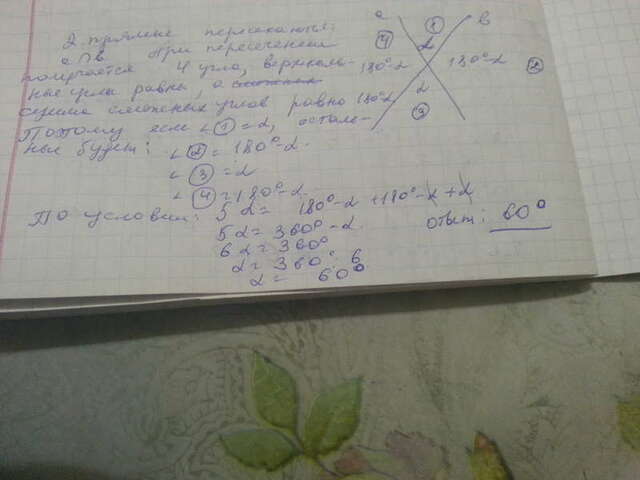 2 прямые пересекаются:
a∩b. При пересечении
получается 4 угла, вертикаль-
ные углы равны, а
сумма смежных углов равно 180°
Поэтому если ∠① = α, осталь-
ные будут:
∠② = 180°-α.
∠③ = α
∠④ = 180°-α.
По условию: 5α = 180°-α + 180°-α + α
5α = 360°-α.
6α = 360°
α = 360° : 6
α = 60°
Ответ: 60°
a
①
b
④
α
180°-α
180°-α
②
α
③